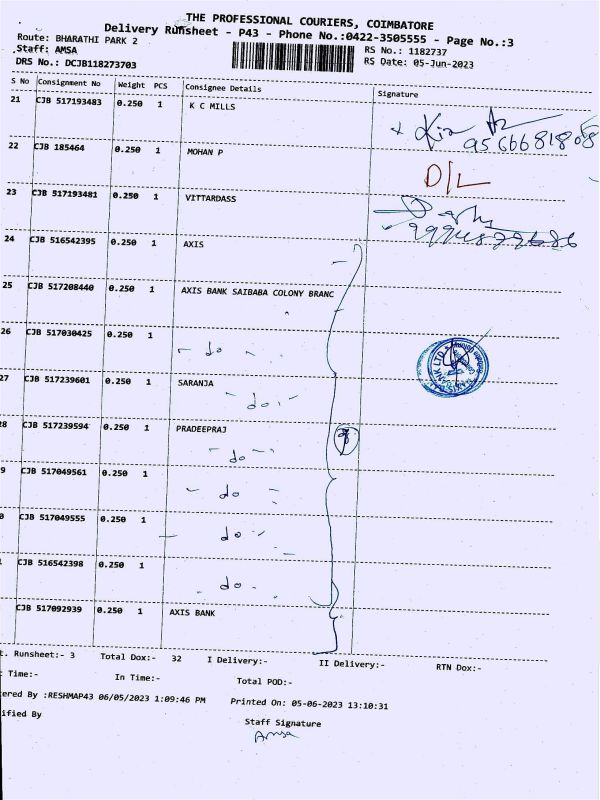 THE PROFESSIONAL COURIERS, COIMBATORE
Delivery Runsheet - P43 - Phone No.:0422-3505555 - Page No.:3
Route: BHARATHI PARK 2 RS No.: 1182737
Staff: AMSA RS Date: 05-Jun-2023
DRS No.: DCJB118273703
S No Consignment No Weight PCS Consignee Details Signature
21 CJB 517193483 0.250 1 K C MILLS
9566681808
22 CJB 185464 0.250 1 MOHAN P
D/L
23 CJB 517193481 0.250 1 VITTARDASS
24 CJB 516542395 0.250 1 AXIS
25 CJB 517208440 0.250 1 AXIS BANK SAIBABA COLONY BRANC
26 CJB 517030425 0.250 1
- do -
27 CJB 517239601 0.250 1 SARANJA
- do -
28 CJB 517239594 0.250 1 PRADEEPRAJ
- do -
9 CJB 517049561 0.250 1
- do -
0 CJB 517049555 0.250 1
- do -
CJB 516542398 0.250 1
- do -
CJB 517092939 0.250 1 AXIS BANK
t. Runsheet:- 3 Total Dox:- 32 I Delivery:- II Delivery:- RTN Dox:-
Time:- In Time:- Total POD:-
ered By :RESHMAP43 06/05/2023 1:09:46 PM Printed On: 05-06-2023 13:10:31
ified By Staff Signature
Amsa